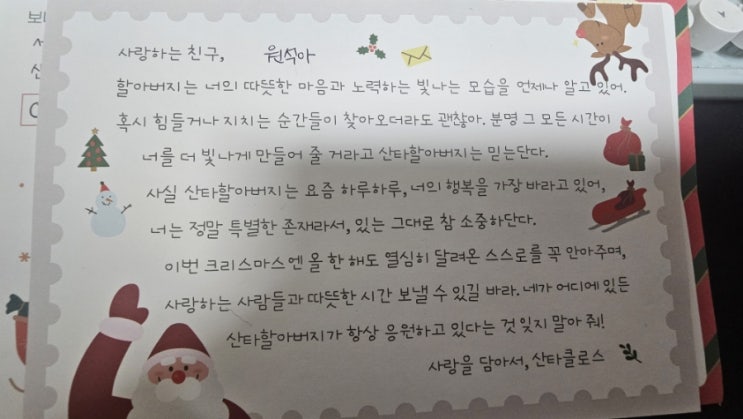 사랑하는 친구, 원석아
할아버지는 너의 따뜻한 마음과 노력하는 빛나는 모습을 언제나 알고 있어.
혹시 힘들거나 지치는 순간들이 찾아오더라도 괜찮아. 분명 그 모든 시간이
너를 더 빛나게 만들어 줄 거라고 산타할아버지는 믿는단다.
사실 산타할아버지는 요즘 하루하루, 너의 행복을 가장 바라고 있어,
너는 정말 특별한 존재라서, 있는 그대로 참 소중하단다.
이번 크리스마스엔 올 한 해도 열심히 달려온 스스로를 꼭 안아주며,
사랑하는 사람들과 따뜻한 시간 보낼 수 있길 바라. 네가 어디에 있든
산타할아버지가 항상 응원하고 있다는 것 잊지 말아 줘!
사랑을 담아서, 산타클로스